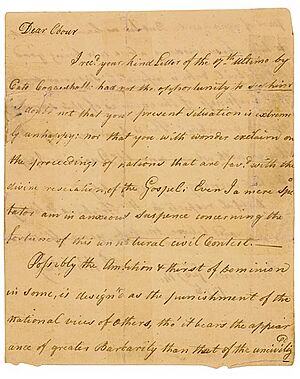 Dear Obour
I recd. your kind Letter of the 17th. Ultimo by
Cato Coggeshall: had not the opportunity to see him
I doubt not that your present situation is extrem-
ly unhappy; nor that you with wonder exclaim on
the proceedings of nations that are fav'd with the
divine revelation, of the Gospel: Even I a mere spec
tator am in anxious suspence concerning the
fortune of this unnatural civil Contest.
Possibly the Ambition & thirst of Dominion
in some, is design'd as the punishment of the
national vices of others, tho' it bears the appear
ance of greater Barbarity than that of the unciviliz'd